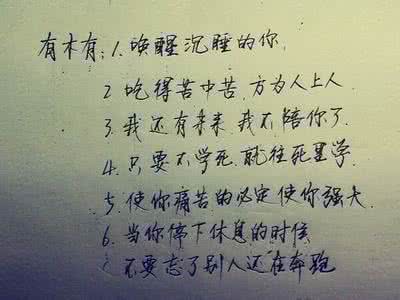 有木有：1. 唤醒沉睡的你
2 吃得苦中苦，方为人上人
3. 我还有未来，我不陪你了
4. 只要不学死，就往死里学
5. 使你痛苦的必定使你强大
6. 当你停下休息的时候
不要忘了别人还在奔跑